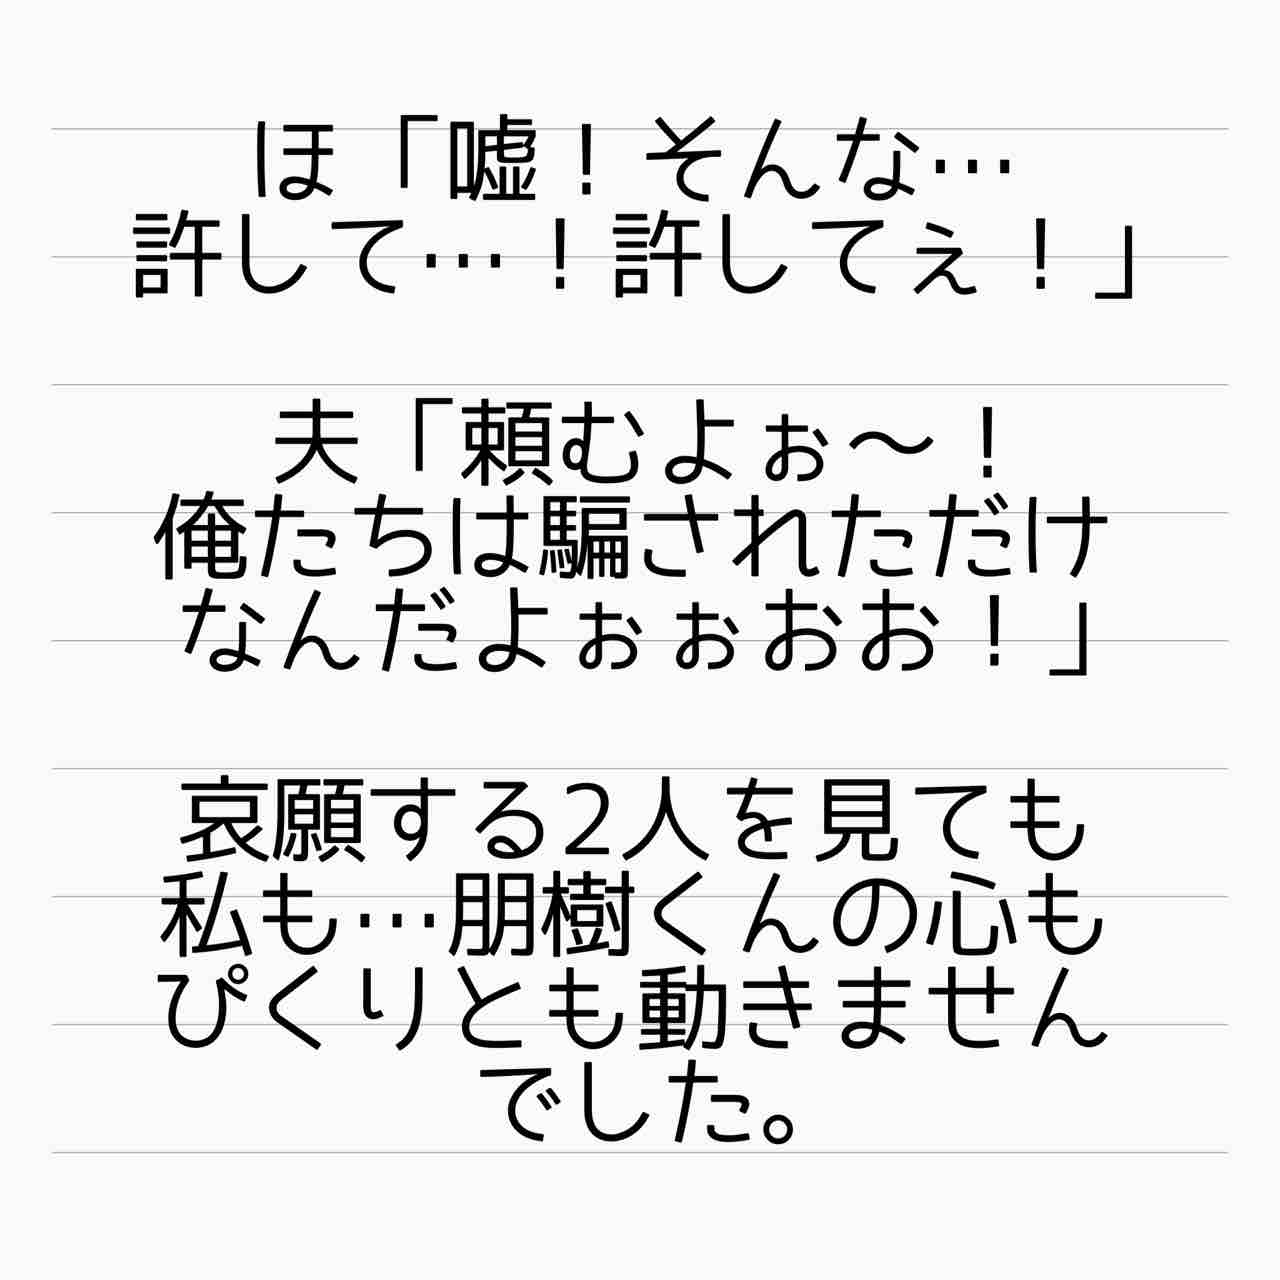 ほ「嘘！そんな…
許して…！許してぇ！」
夫「頼むよぉ〜！
俺たちは騙されただけ
なんだよぉぉおお！」
哀願する2人を見ても
私も…朋樹くんの心も
ぴくりとも動きません
でした。